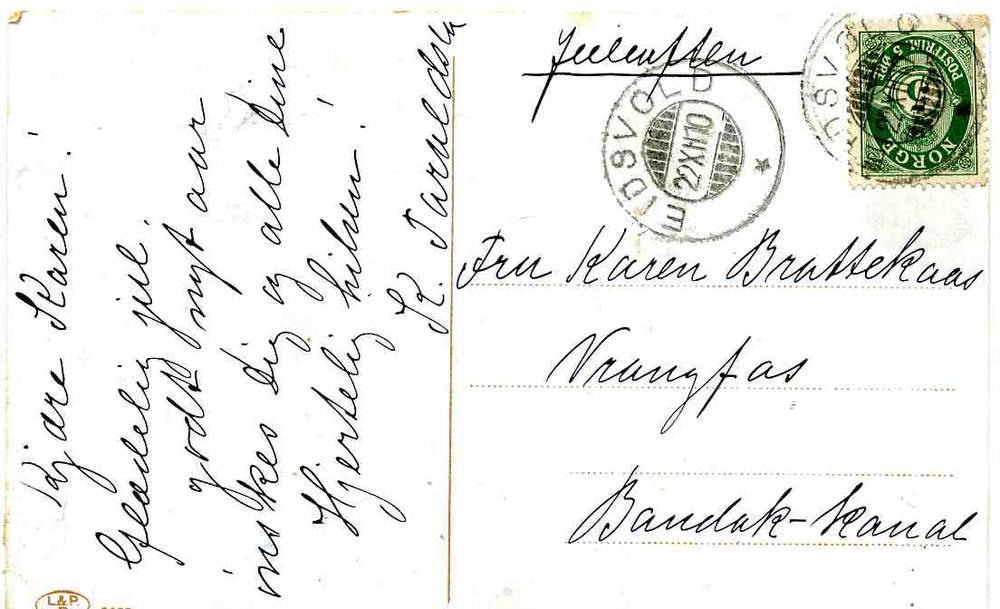 Kjære Karen!
Glædelig jul.
godt nyt aar
ønskes Dig og alle Dine
Hjertelig hilsen!
K. Taraldsen
Juleaften
EIDSVOLD
22 XII 10
NORGE
POSTFRIM. 5 ØRE
5
Fru Karen Brattekaas
Vrangfos
Bandak-Kanal
L&P.